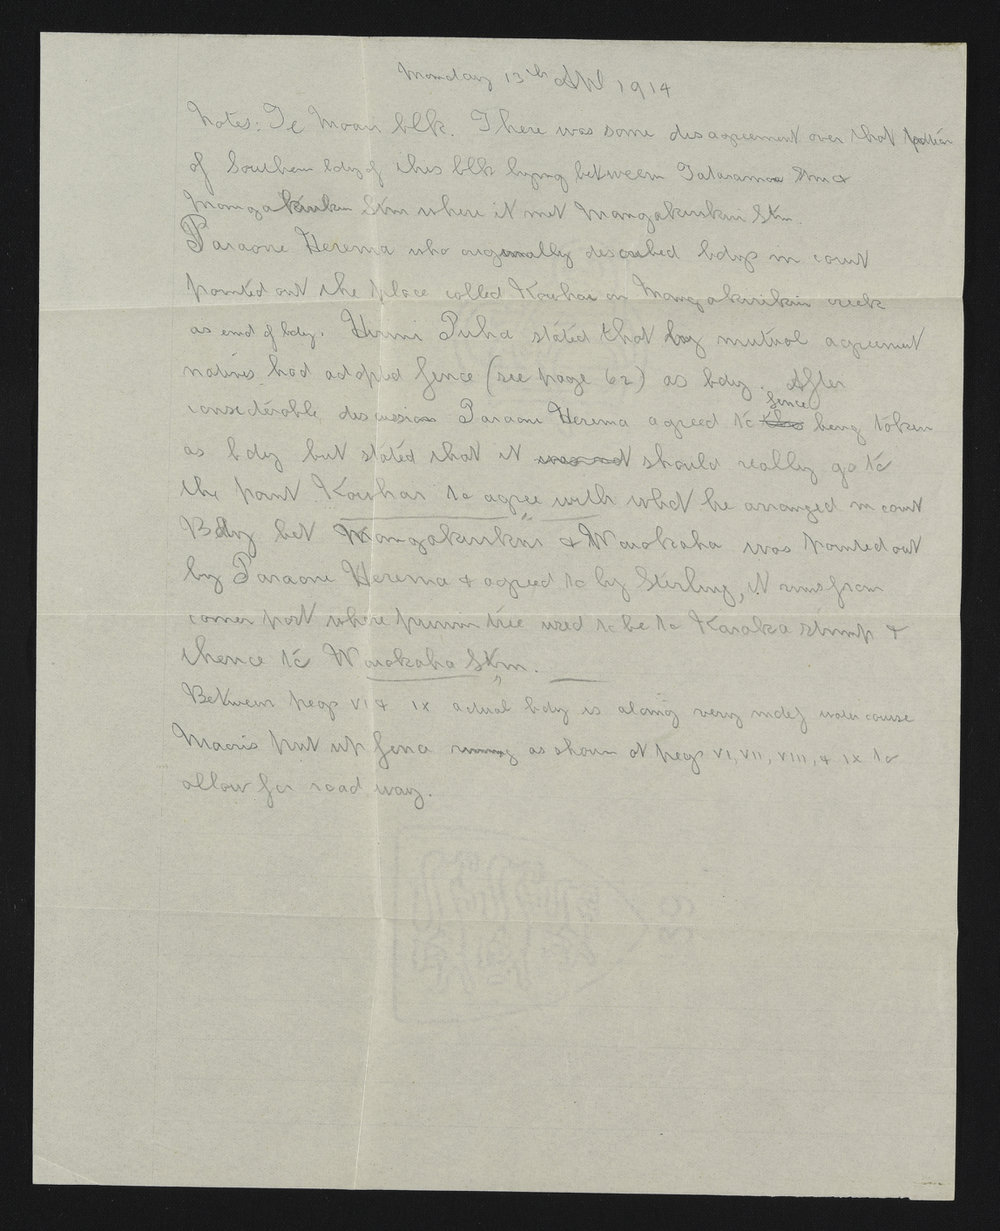 Monday 13th Apl 1914
Notes: Te Moari blk. There was some disagreement over that portion
of Southern bdy of this blk lying between Tataramoa Stm &
Mangakirikiri Stm where it met Mangakirikiri Stm.
Paraone Herema who originally described bdys in court
pointed out the place called Kowhai on Mangakirikiri creek
as end of bdy. Hirini Puha stated that by mutual agreement
natives had adopted fence (see page 62) as bdy. After
considerable discussion Paraone Herema agreed to fence being taken
as bdy but stated that it was not should really go to
the point Kowhai to agree with what he arranged in court
Bdy bet Mangakirikiri & Waiokaha was pointed out
by Paraone Herema & agreed to by Stirling, it runs from
corner post where puriri tree used to be to Karaka stump &
thence to Waiokaha Stm.
Between pegs VI & IX actual bdy is along very indef water course
Maoris put up fence running as shown at pegs VI, VII, VIII, & IX to
allow for road way.